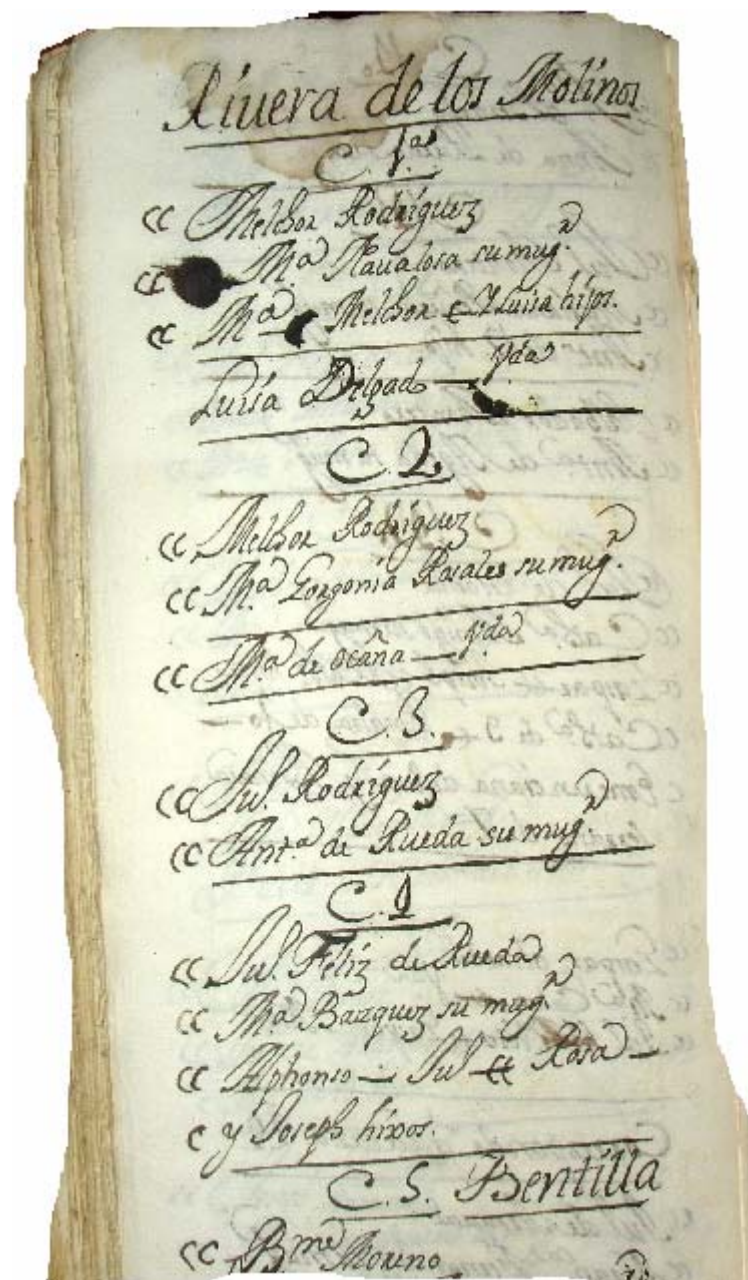 Riuera de los Molinos
C. 1.ª
cc Melchor Rodriguez
cc M.ª Naualosa su mug.r
cc M.ª c Melchor c Y Luisa hijos.
Luisa Delgado — Vda
C. 2.
cc Melchor Rodriguez
cc M.ª Gorgonia Rosales su mug.r
cc M.ª de ocaña — Vda
C. 3.
cc Ju.º Rodriguez
cc Ant.ª de Rueda su mug.r
C. 4
cc Ju.º Feliz de Rueda
cc M.ª Bazquez su mug.r
cc Alphonso — Ju.º cc Rosa —
c y Joseph hixos.
C. 5. Bentilla
cc Bme Moreno